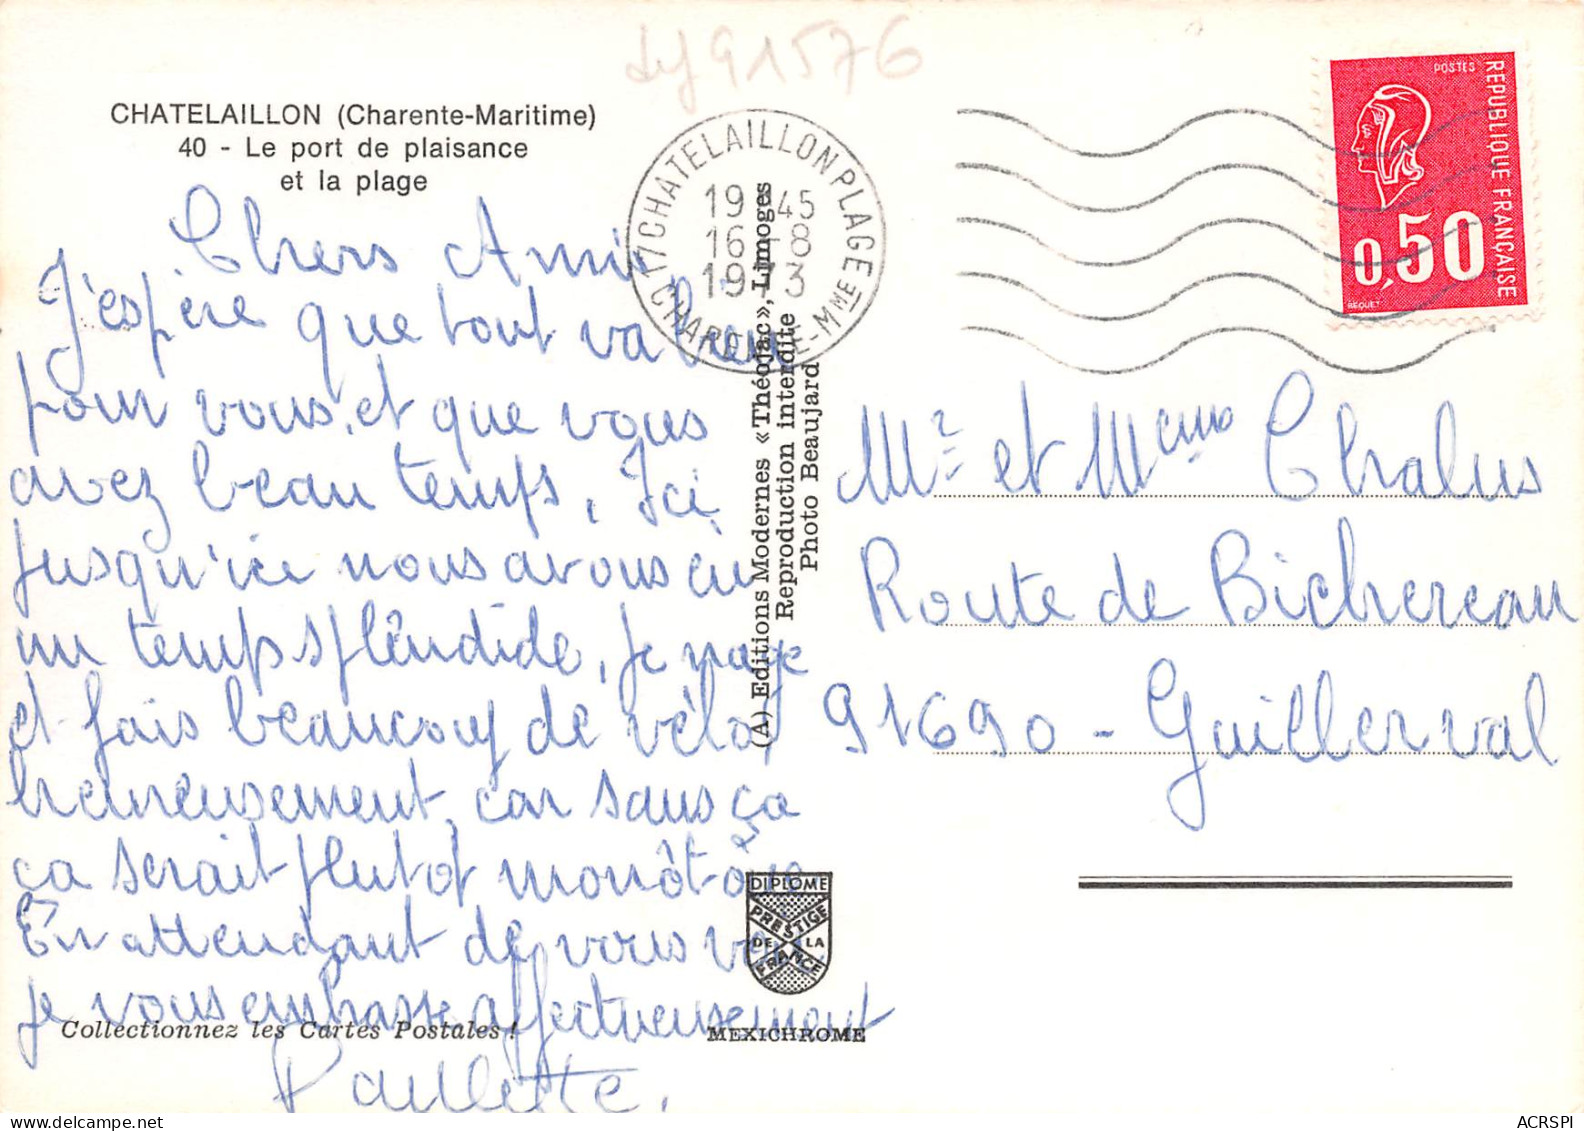 Ly91576
CHATELAILLON (Charente-Maritime)
40 - Le port de plaisance
et la plage
17 CHATELAILLON PLAGE
19H45
16-8
1973
CHARENTE-MME
POSTES
REPUBLIQUE FRANÇAISE
0,50
BEQUET
Chers Amis
J'espère que tout va bien
pour vous, et que vous
avez beau temps, Ici
jusqu'ici nous avons eu
un temps splêndide, je nage
et fais beaucoup de vélo,
heureusement, car sans ça
ça serait plutot monôtône
En attendant de vous voir
je vous embrasse affectueusement
Paulette.
(A) Editions Modernes «Théojac», Limoges
Reproduction interdite
Photo Beaujard
Mr et Meme Chalus
Route de Bichereau
91690 - Guillerval
DIPLOME
PRESTIGE
DE LA
FRANCE
Collectionnez les Cartes Postales !
MEXICHROME
ACRSPI